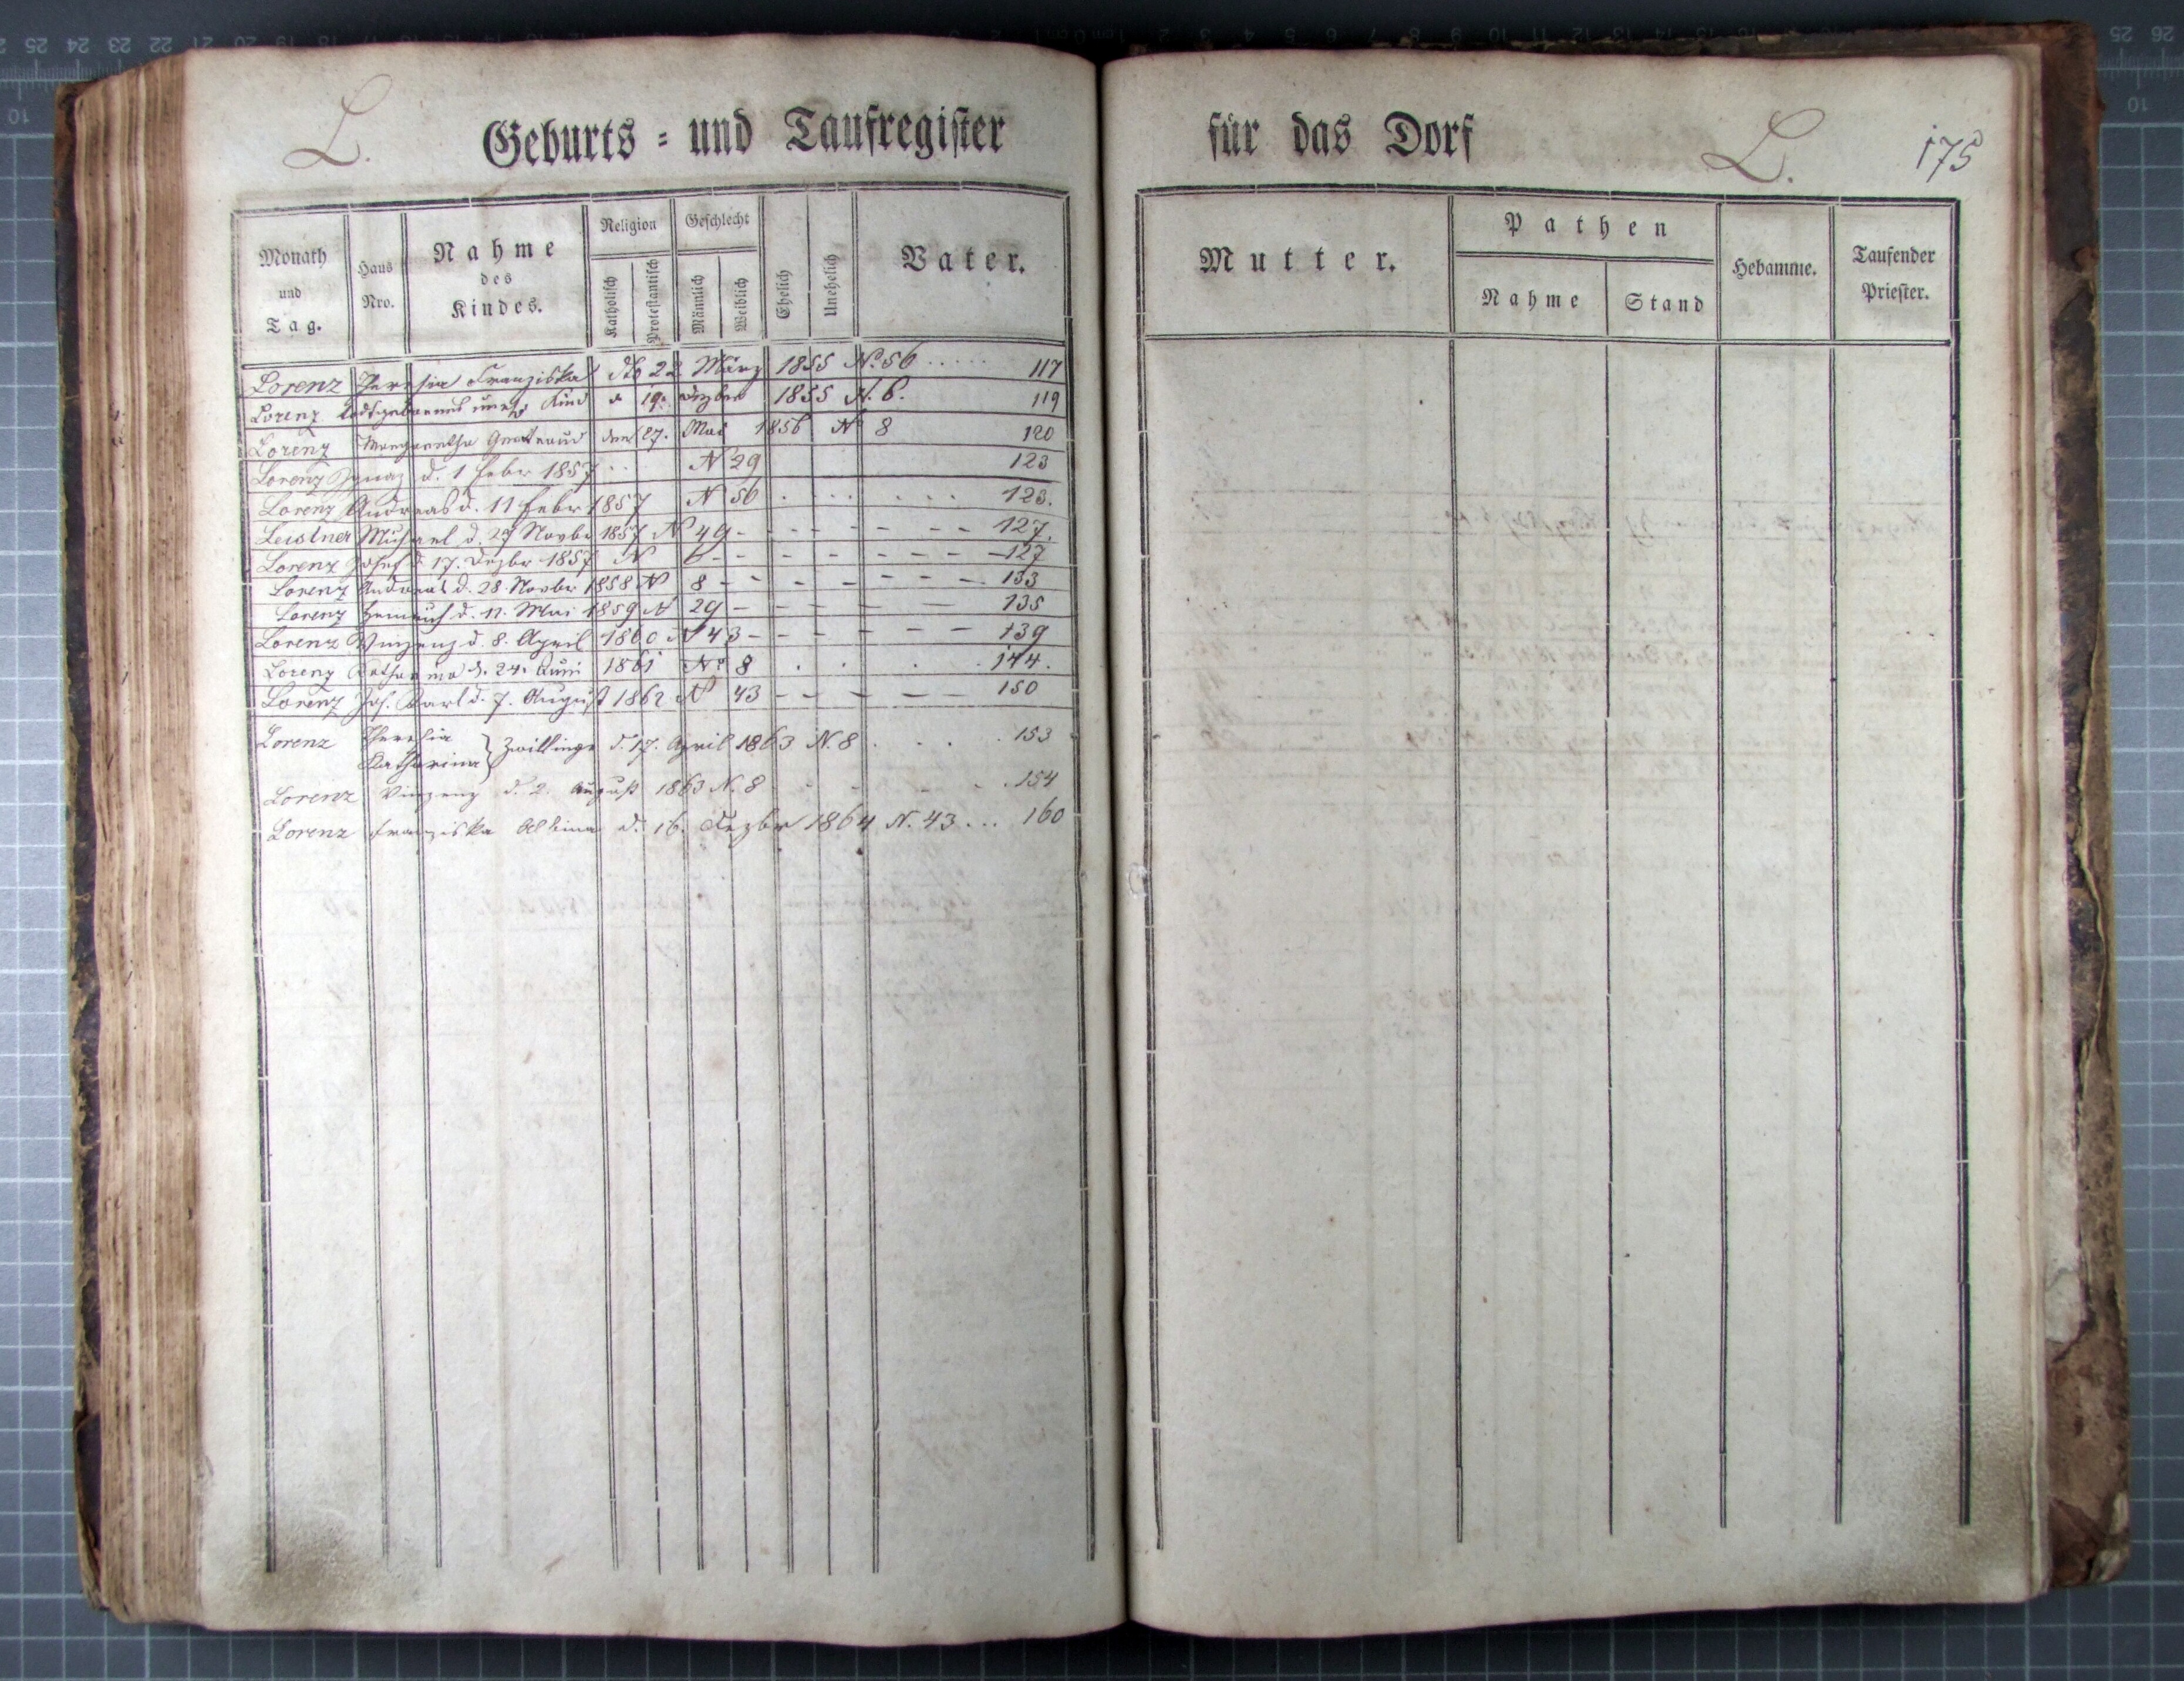 L. Geburts = und Taufregister
Monath und Tag.
Haus Nro.
Nahme des Kindes.
Religion
Katholisch
Protestantisch
Geschlecht
Männlich
Weiblich
Ehelich
Unehelich
Vater.
Lorenz Theresia Franziska 22 März 1855 No. 56 ..... 117
Lorenz Kind 19. Dezber 1855 N. 6. 119
Lorenz Margaretha Gertraud den 27. Mai 1856 No 8 120
Lorenz Ignaz d. 1 Febr 1857 .. N 29 123
Lorenz Andreas d. 11 Febr 1857 N 56 . ... ... 123.
Leistner Michael d. 29 Novbr 1857 N 49 - - - - - - - 127.
Lorenz Josef d. 17. Dezbr 1857 N 6 - - - - - - - 127
Lorenz Andreas d. 28. Novbr 1858 N 8 - - - - - - - 133
Lorenz Heinrich d. 11. Mai 1859 N 29 - - - - - 135
Lorenz Vinzenz d. 8. April 1860 N 43 - - - - - - 139
Lorenz Katharina d. 24. Juni 1861 No 8 . . . . 144.
Lorenz Jos. Karl d. 7. August 1862 N 43 - - - - - 150
Lorenz Theresia
Katharina } Zwillinge d. 17. April 1863 N. 8 . . . . 153
Lorenz Vinzenz d. 2. August 1863 N. 8 . . . . 154
Lorenz Franziska Albina d. 16. Dezbr 1864 N. 43 ... 160
für das Dorf L. 175
Mutter.
Pathen
Nahme
Stand
Hebamme.
Taufender Priester.